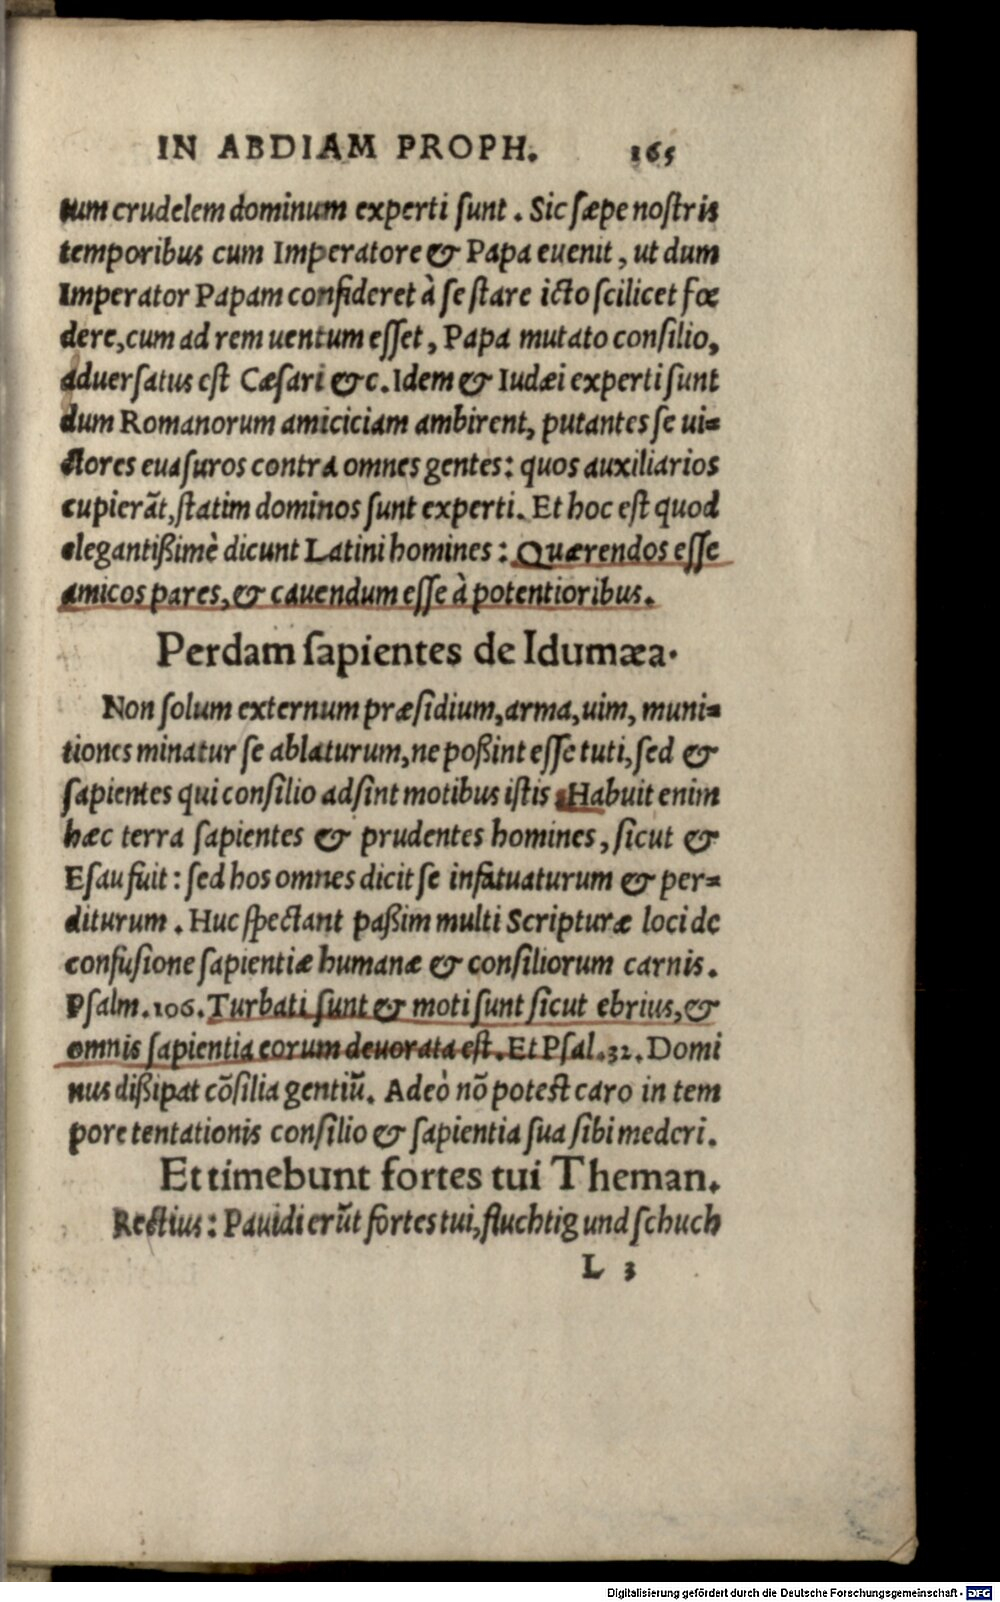 IN ABDIAM PROPH. 165
tum crudelem dominum experti ſunt. Sic ſæpe noſtris
temporibus cum Imperatore & Papa euenit, ut dum
Imperator Papam confideret à ſe ſtare icto ſcilicet fœ
dere, cum ad rem uentum eſſet, Papa mutato conſilio,
aduerſatus eſt Cæſari &c. Idem & Iudæi experti ſunt
dum Romanorum amiciciam ambirent, putantes ſe ui=
ctores euaſuros contra omnes gentes: quos auxiliarios
cupierāt, ſtatim dominos ſunt experti. Et hoc eſt quod
elegantißimè dicunt Latini homines: Quærendos eſſe
amicos pares, & cauendum eſſe à potentioribus.
Perdam ſapientes de Idumæa.
Non ſolum externum præſidium, arma, uim, muni=
tiones minatur ſe ablaturum, ne poßint eſſe tuti, ſed &
ſapientes qui conſilio adſint motibus iſtis. Habuit enim
hæc terra ſapientes & prudentes homines, ſicut &
Eſau fuit: ſed hos omnes dicit ſe infatuaturum & per=
diturum. Huc ſpectant paßim multi Scripturæ loci de
confuſione ſapientiæ humanæ & conſiliorum carnis.
Pſalm. 106. Turbati ſunt & moti ſunt ſicut ebrius, &
omnis ſapientia eorum deuorata eſt. Et Pſal. 32. Domi
nus dißipat cōſilia gentiū. Adeò nō poteſt caro in tem
pore tentationis conſilio & ſapientia ſua ſibi mederi.
Et timebunt fortes tui Theman.
Rectius: Pauidi erūt fortes tui, fluchtig und ſchuch
L 3
Digitalisierung gefördert durch die Deutsche Forschungsgemeinschaft - DFG